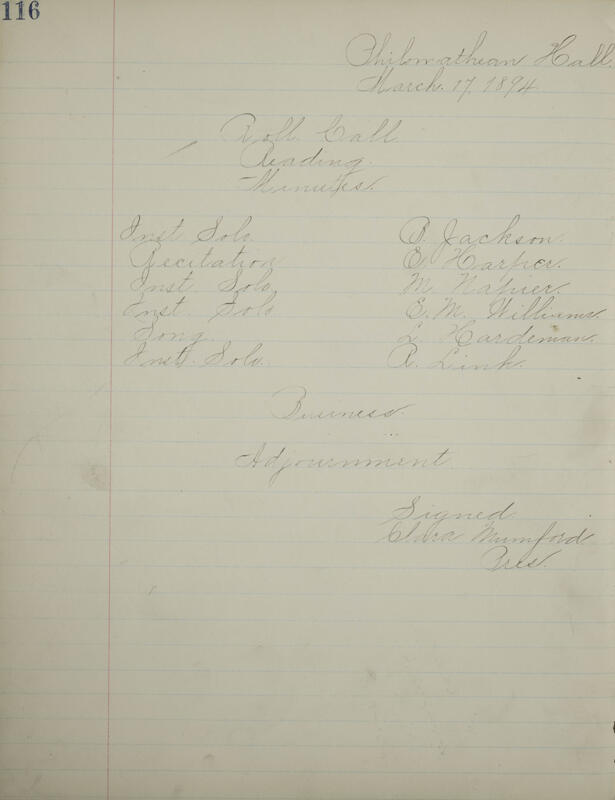 116
Philomathean Hall.
March. 17, 1894
Roll Call
Reading.
Minutes.
Inst. Solo. B. Jackson.
Recitation E. Harper.
Inst. Solo. M. Napier.
Inst. Solo E. M. Williams.
Song. L. Hardeman.
Inst. Solo. R. Link.
Business.
Adjournment.
Signed.
Clara Mumford
Pres.